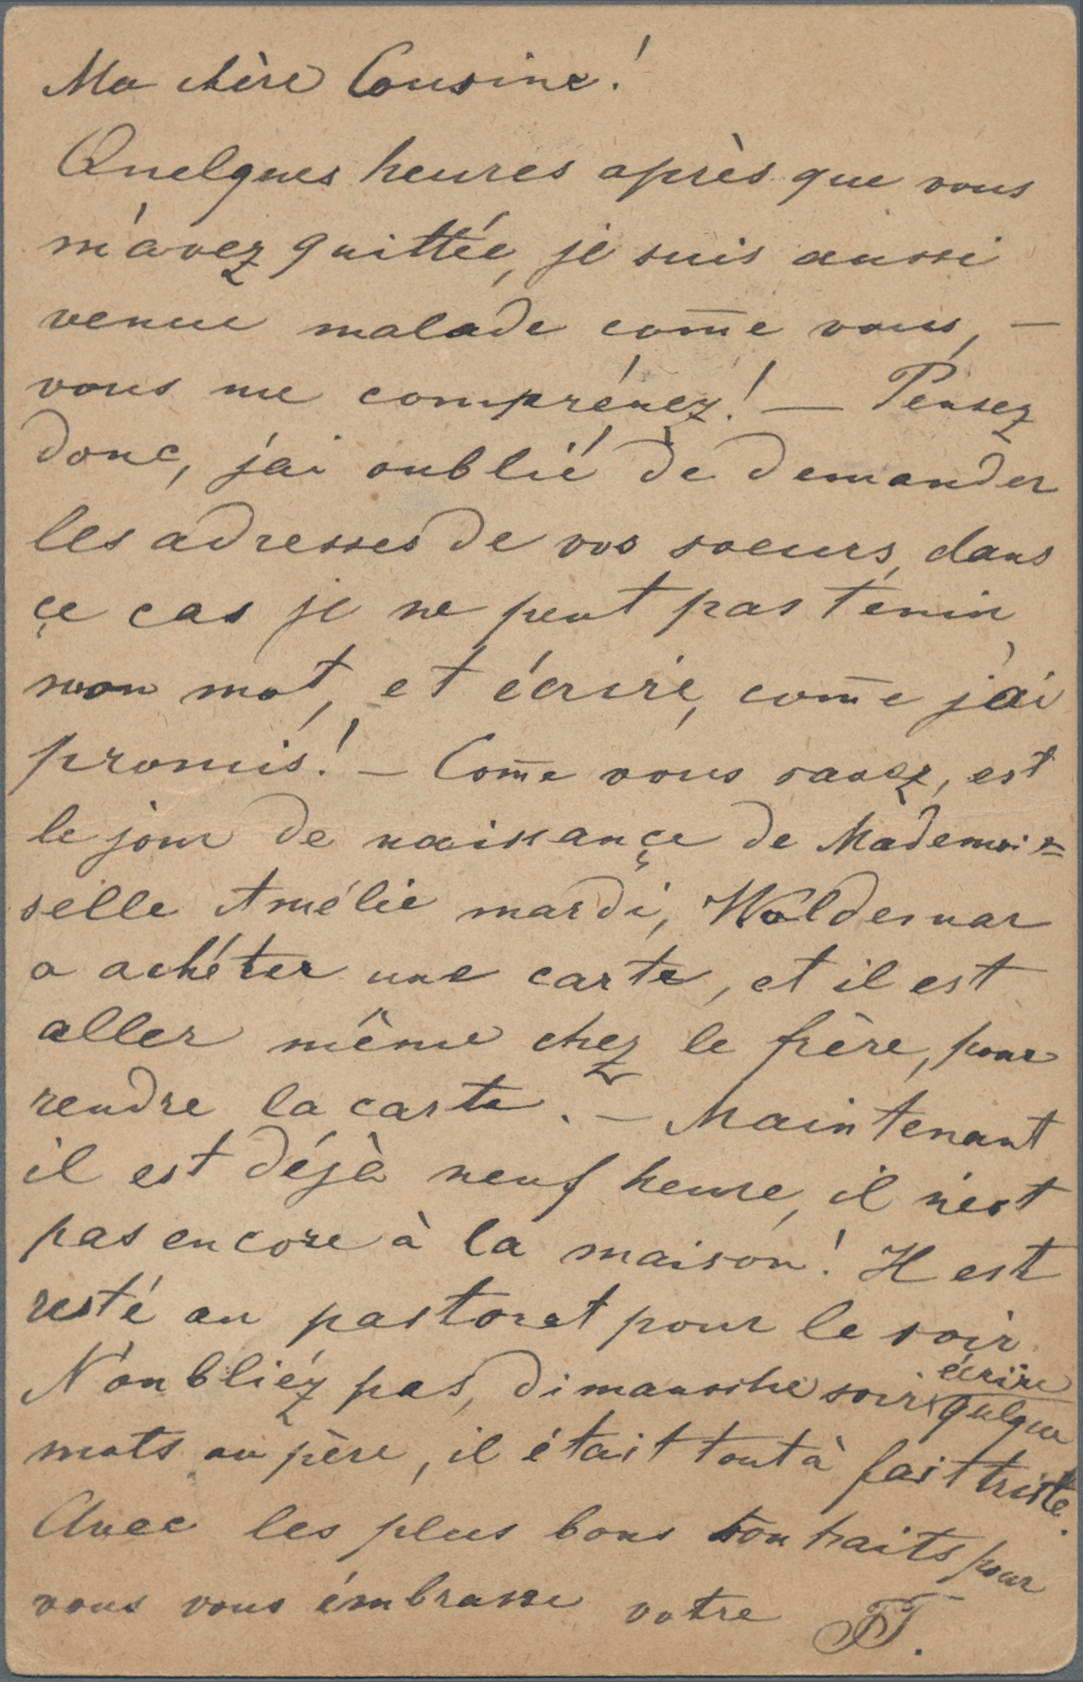 Ma chère Cousine!
Quelques heures après que vous
m'avez quittée, je suis aussi
venue malade com̄e vous, —
vous me comprénez! — Pensez
donc, j'ai oublié de demander
les adresses de vos soeurs, dans
çe cas je ne peut pas tenir
mon mot, et écrire, com̄e j'ai
promis! — Com̄e vous savez, est
le jour de naissançe de Mademoi=
selle Amélie mardi, Woldemar
a achéter une carte, et il est
aller même chez le frère, pour
rendre la carte. — Maintenant
il est déjà neuf heure, il n'est
pas encore à la maison! Il est
resté au pastorat pour le soir.
N'oubliéz pas, dimansche soir écrire
qulque
mots au père, il était tout à fait triste.
Avec les plus bons souhaits pour
vous vous émbrasse votre T.